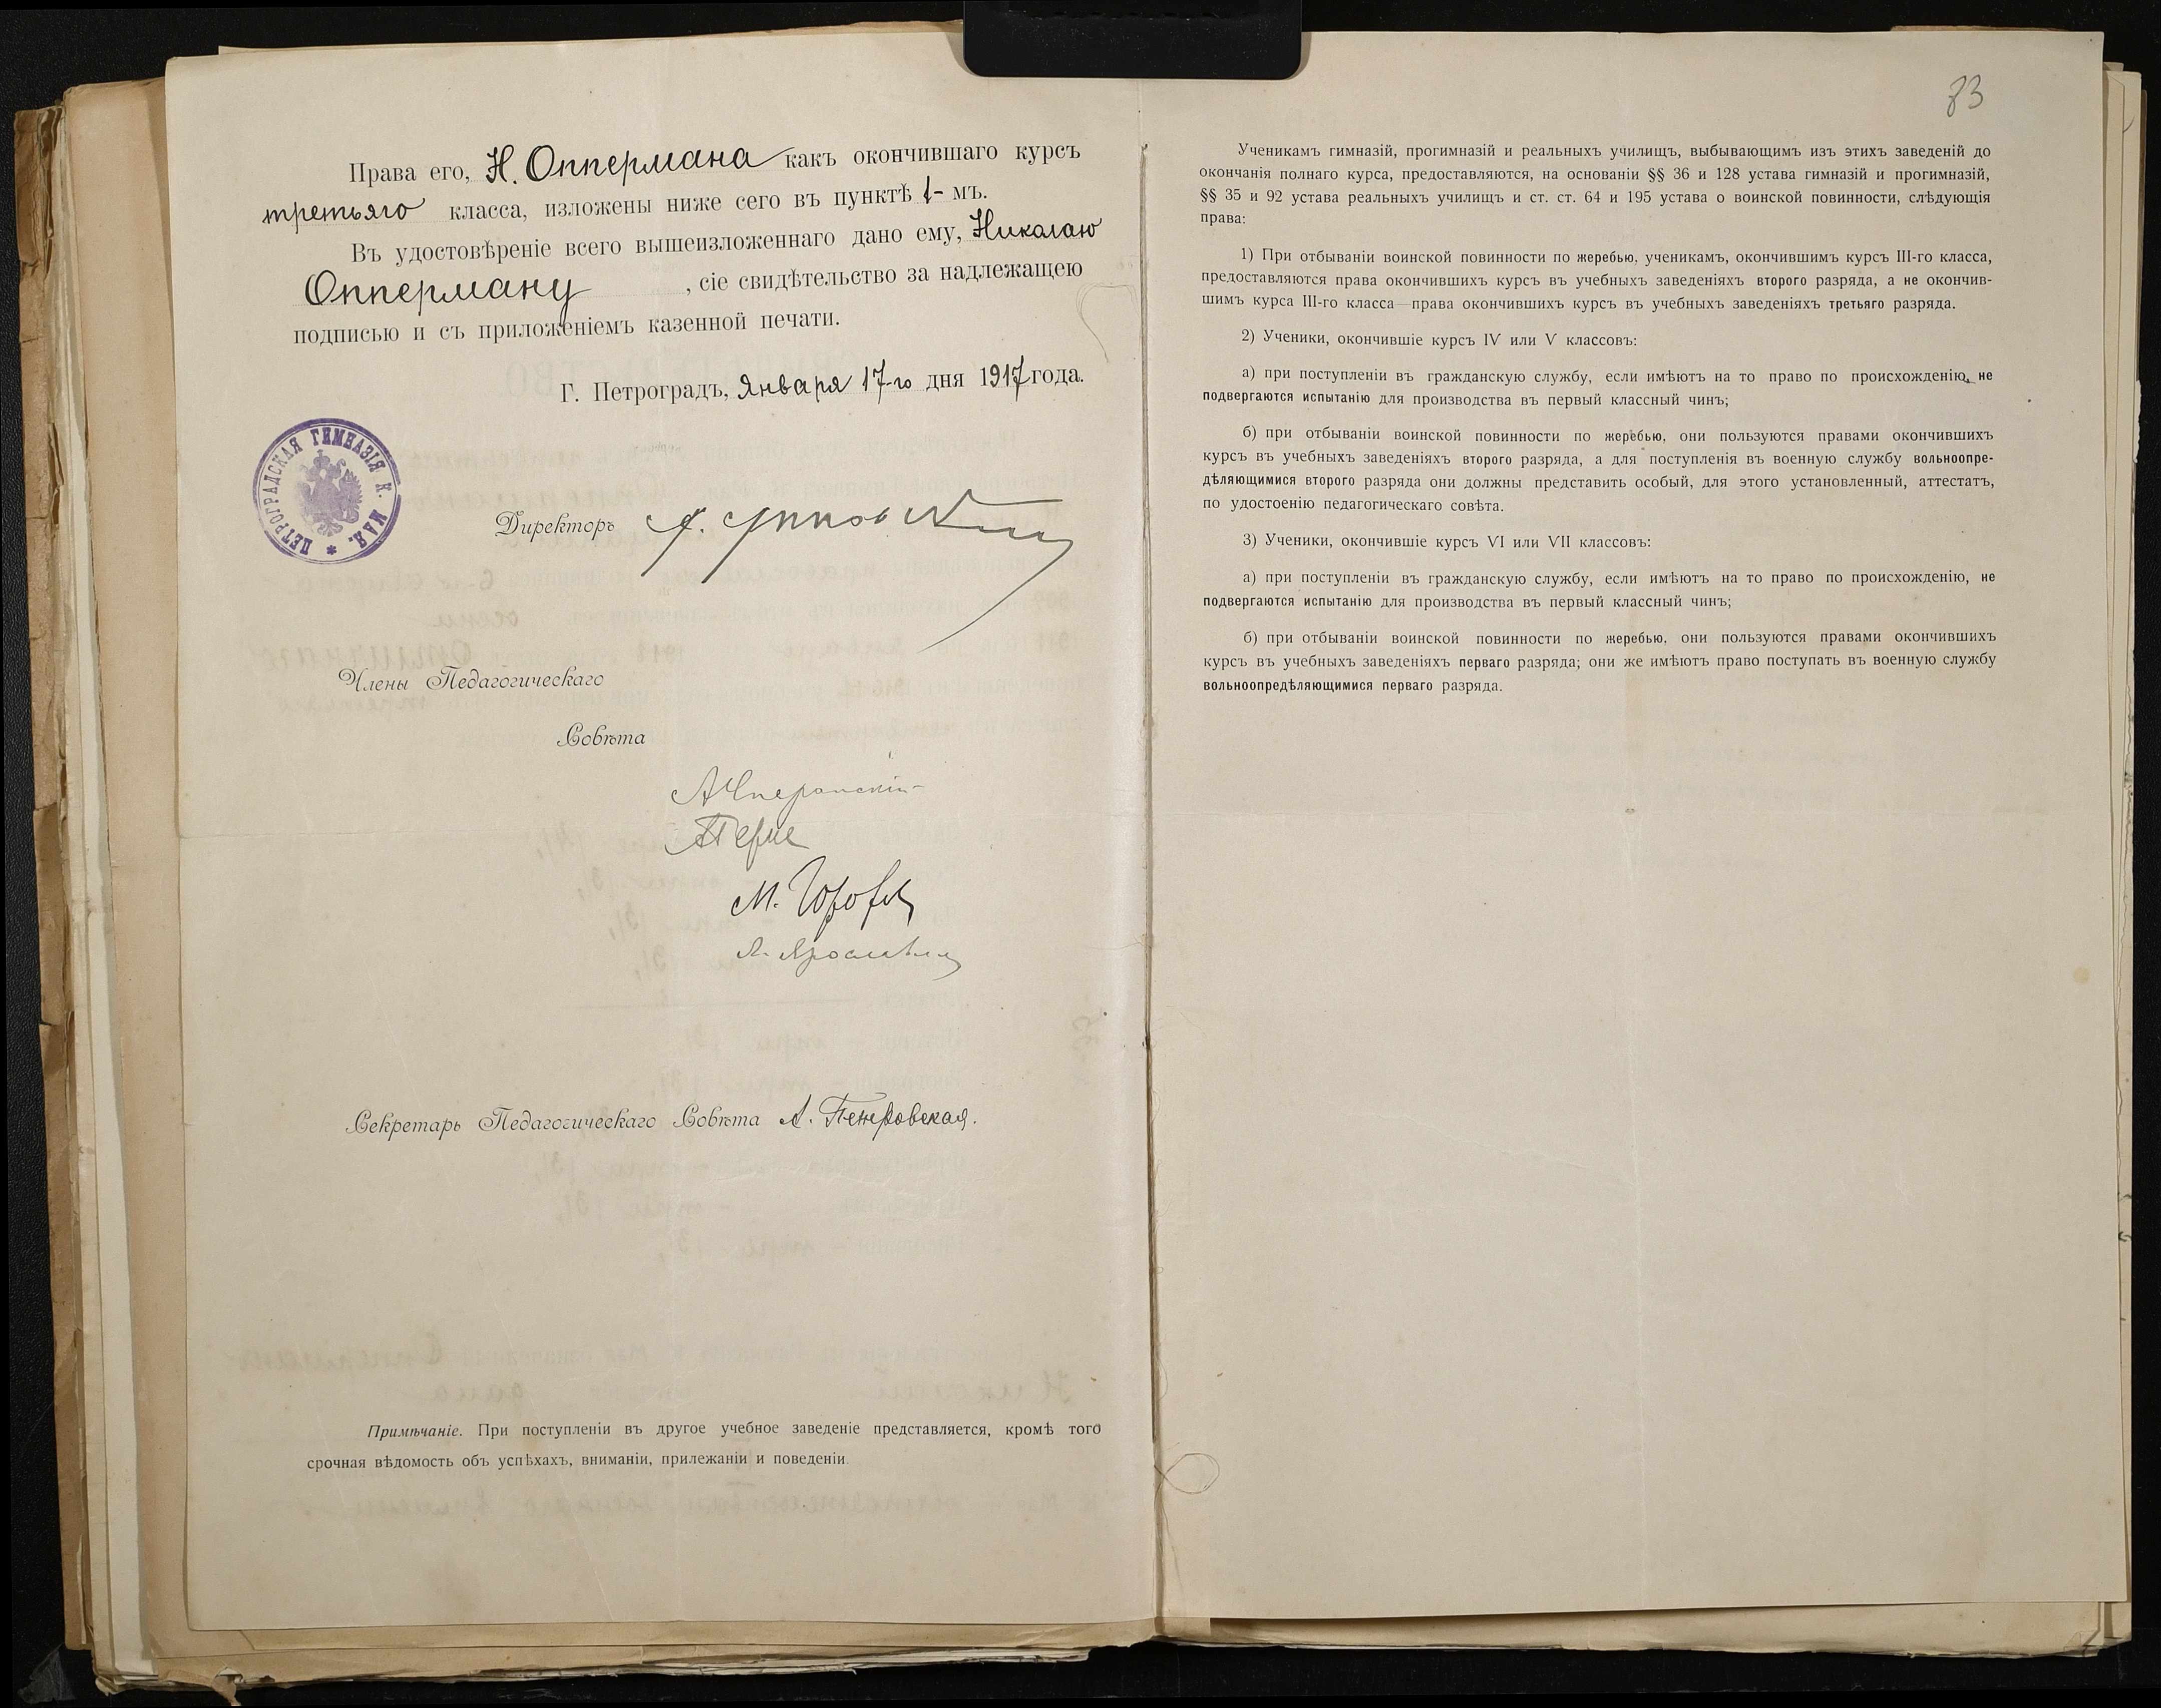 Права его, Н. Оппермана какъ окончившаго курсъ
третьяго класса, изложены ниже сего въ пунктѣ 1-мъ.
Въ удостовѣреніе всего вышеизложеннаго дано ему, Николаю
Опперману, сіе свидѣтельство за надлежащею
подписью и съ приложеніемъ казенной печати.
Г. Петроградъ, Января 17-го дня 1917 года.
ПЕТРОГРАДСКАЯ ГИМНАЗІЯ К. МАЯ. *
Директоръ
Члены Педагогическаго
Совѣта
Секретарь Педагогическаго Совѣта А.
Примѣчаніе. При поступленіи въ другое учебное заведеніе представляется, кромѣ того
срочная вѣдомость объ успѣхахъ, вниманіи, прилежаніи и поведеніи.
83
Ученикамъ гимназій, прогимназій и реальныхъ училищъ, выбывающимъ изъ этихъ заведеній до
окончанія полнаго курса, предоставляются, на основаніи §§ 36 и 128 устава гимназій и прогимназій,
§§ 35 и 92 устава реальныхъ училищъ и ст. ст. 64 и 195 устава о воинской повинности, слѣдующія
права:
1) При отбываніи воинской повинности по жеребью, ученикамъ, окончившимъ курсъ III-го класса,
предоставляются права окончившихъ курсъ въ учебныхъ заведеніяхъ второго разряда, а не окончив-
шимъ курса III-го класса—права окончившихъ курсъ въ учебныхъ заведеніяхъ третьяго разряда.
2) Ученики, окончившіе курсъ IV или V классовъ:
а) при поступленіи въ гражданскую службу, если имѣютъ на то право по происхожденію, не
подвергаются испытанію для производства въ первый классный чинъ;
б) при отбываніи воинской повинности по жеребью, они пользуются правами окончившихъ
курсъ въ учебныхъ заведеніяхъ второго разряда, а для поступленія въ военную службу вольноопре-
дѣляющимися второго разряда они должны представить особый, для этого установленный, аттестатъ,
по удостоенію педагогическаго совѣта.
3) Ученики, окончившіе курсъ VI или VII классовъ:
а) при поступленіи въ гражданскую службу, если имѣютъ на то право по происхожденію, не
подвергаются испытанію для производства въ первый классный чинъ;
б) при отбываніи воинской повинности по жеребью, они пользуются правами окончившихъ
курсъ въ учебныхъ заведеніяхъ перваго разряда; они же имѣютъ право поступать въ военную службу
вольноопредѣляющимися перваго разряда.